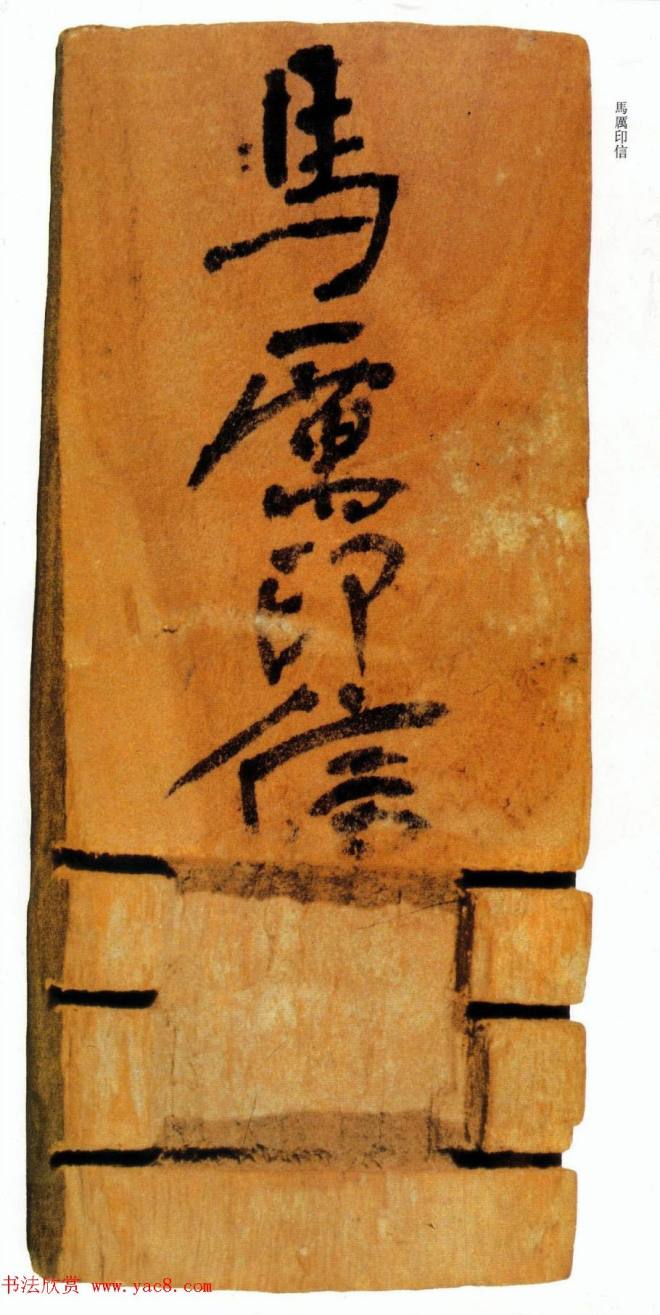 馬厲印信
馬厲印信
书法欣赏 www.yac8.com